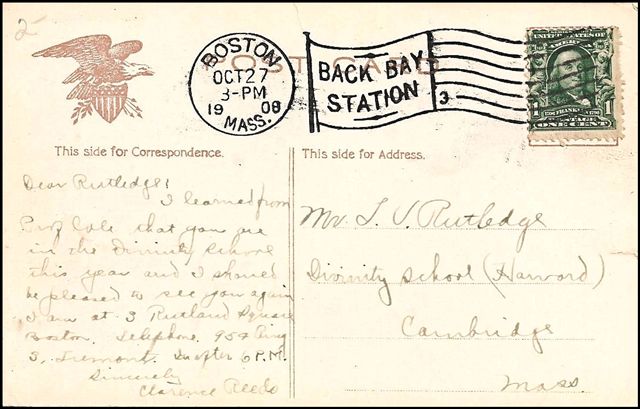 2
BOSTON
OCT 27
3-PM
1908
MASS.
POST CARD
BACK BAY
STATION
3
UNITED STATES OF AMERICA
1 FRANKLIN 1
POSTAGE
ONE CENT
This side for Correspondence.
This side for Address.
Dear Rutledge:
I learned from
Prof Cole that you are
in the Divinity School
this year and I should
be pleased to see you again
I am at 3 Rutland Square
Boston. Telephone. 954
S. Tremont. In after 6 P.M.
Sincerely
Clarence Reed
Mr. L. V. Rutledge
Divinity School (Harvard)
Cambridge
Mass.